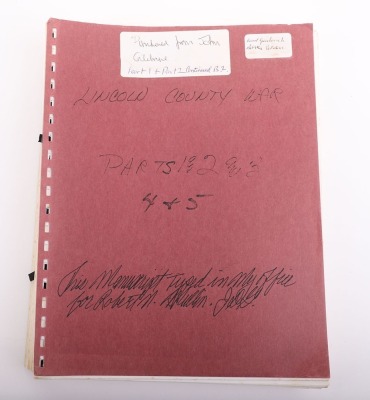 Purchased from John
Gilchriese
Part 1 & Part 2 Continued Pt 3.
LINCOLN COUNTY WAR
PARTS 1 & 2 & 3
4 & 5
This Manuscript typed in my office
for Robert N. Mullin.